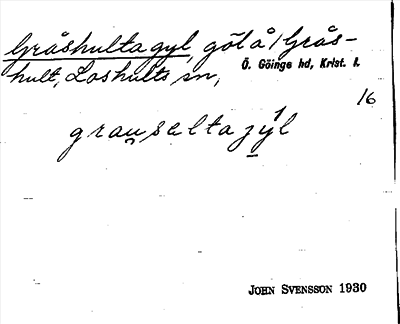 Gråshulta gyl, göl å/Grås-
hult, Loshults sn,
Ö. Göinge hd, Krist. l.
16
grau̯seltaȷý̠l
JOHN SVENSSON 1930